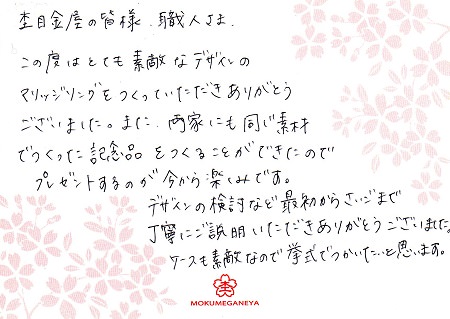 杢目金屋の皆様、職人さま、
この度はとても素敵なデザインの
マリッジリングをつくっていただきありがとう
ございました。また、両家にも同じ素材
でつくった記念品をつくることができたので
プレゼントするのが今から楽しみです。
デザインの検討など最初からさいごまで
丁寧にご説明いただきありがとうございました。
ケースも素敵なので挙式でつかいたいと思います。
杢
MOKUMEGANEYA